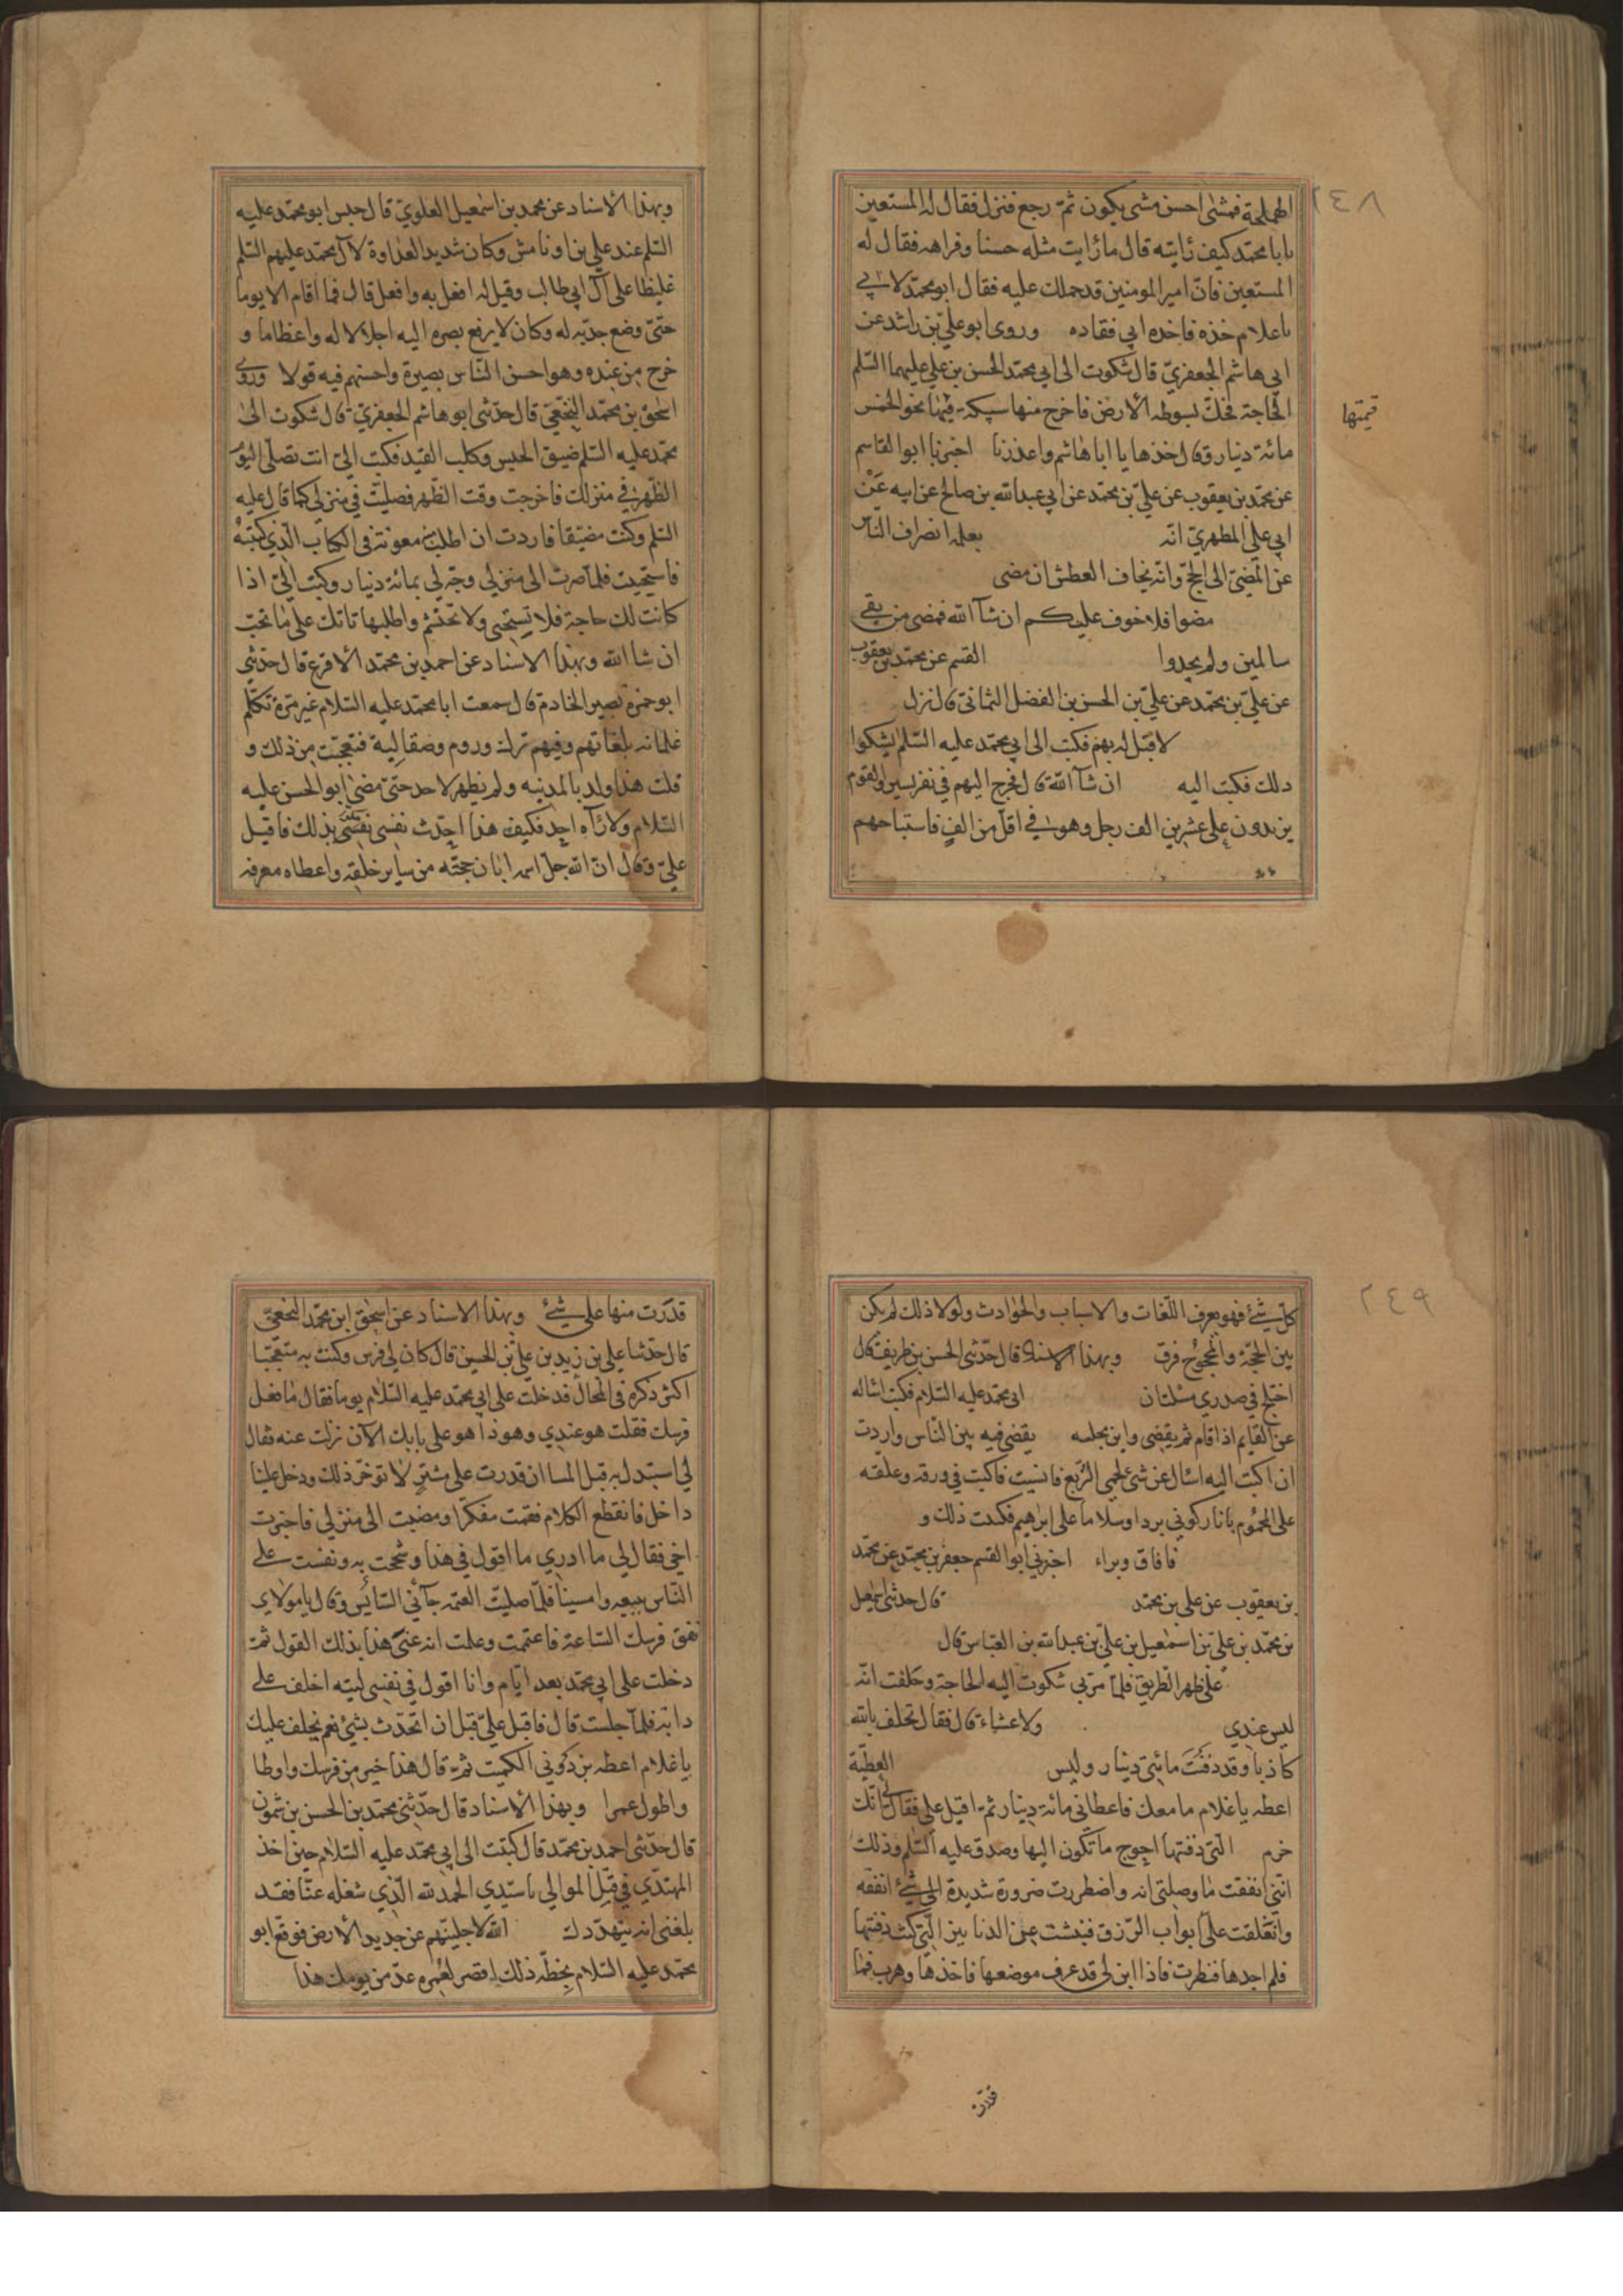 ٢٤٨
الهملجة فمشى احسن مشى يكون ثمّ رجع فنزل فقال له المستعين
يابا محمّد كيف رايته قال ما رايت مثله حسنا وفراهه فقال له
المستعين فانّ امير المومنين قد حملك عليه فقال ابو محمّد لابي
ياغلام خذه فاخذه ابي فقاده وروى ابو علي بن راشد عن
ابي هاشم الجعفريّ قال شكوت الى ابي محمّد الحسن بن علي عليهما السّلم
الحاجة فحكّ بسوطه الأرض فاخرج منها سبيكة فيها نحو الخمس
قيمتها
مائة دينار وقال خذها يا ابا هاشم واعذرنا اخبرنا ابو القاسم
عن محمّد بن يعقوب عن عليّ بن محمّد عن ابي عبد الله بن صالح عن ابيه عن
ابي علي المطهريّ انه بعلمه انصراف الناس
عن المضيّ الى الحجّ وانّه يخاف العطش ان مضى
مضوا فلا خوف عليكم ان شآ الله فمضى من بقي
سالمين ولم يجدوا القسم عن محمّد بن يعقوب
عن عليّ بن محمّد عن عليّ بن الحسن بن الفضل اليمانى قال نزل
لا قبل له بهم فكتب الى ابي محمّد عليه السّلم يشكوا
ذلك فكتب اليه ان شآ الله قال فخرج اليهم في نفر يسير والقوم
يزيدون على عشرين الف رجل وهو في اقلّ من الفٍ فاستباحهم
وبهذا الأسناد عن محمد بن اسمعيل العلويّ قال حبس ابو محمّد عليه
السّلم عند علي بن اونامش وكان شديد العداوة لآل محمّد عليهم السّلم
غليظا على آل ابي طالب وقيل له افعل به وافعل قال فما اقام الا يوما
حتىّ وضع خدّيه له وكان لا يرفع بصره اليه اجلالا له واعظاما و
خرج من عنده وهو احسن النّاس بصيرة واحسنهم فيه قولا وروى
اسحق بن محمّد النخعيّ قال حدّثنى ابو هاشم الجعفريّ قال شكوت الى
محمّد عليه السّلم ضيق الحبس وكلب القيد فكتب الىّ انت تصلّى اليوم
الظّهر في منزلك فاخرجت وقت الظّهر فصليّت في منزلي كما قال عليه
السّلم وكنت مضيّقا فاردت ان اطلب منه معونة في الكتاب الّذي كتبته
فاستحييت فلمّا صرت الى منزلي وجّه لي بمائة دينار وكتب اليّ اذا
كانت لك حاجة فلا تستحيى ولا تحتشم واطلبها تاتك على ما تحبّ
ان شا الله وبهذا الاسناد عن احمد بن محمّد الأقرع قال حدّثنى
ابو حمزة نصير الخادم قال سمعت ابا محمّد عليه السّلام غير مرّة تكلّم
غلمانه بلغاتهم وفيهم ترك وروم وصقالية فتعجّبت من ذلك و
قلت هذا ولد بالمدينه ولم يظهر لاحد حتىّ مضى ابو الحسن عليه
السّلام ولا رآه احد فكيف هذا احدّث نفسى بذلك فاقبل
عليّ وقال انّ الله جلّ اسمه ابان حجّته من سائر خلقه واعطاه معرفه
٢٤٩
كلّ شيء فهو يعرف اللّغات والاسباب والحوادث ولولا ذلك لم يكن
بين الحجّة والمحجوج فرق وبهذا الاسناد قال حدّثنى الحسن بن ظريف قال
اختلج في صدري مسئلتان ابى محمّد عليه السّلام فكتبت اساله
عن القايم اذا قام ثم يقضي واين مجلسه يقضى فيه بين النّاس واردت
ان اكتب اليه اسال عن شئ لحمى الرّبع فانسيت فاكتب في ورقة وعلقه
على المحموم يا نار كوني بردا وسلاما على ابرهيم فكتبت ذلك و
فافاق وبراء اخبرني ابو القسم جعفر بن محمّد عن محمّد
بن يعقوب عن علي بن محمّد قال حدثني اسمعيل
بن محمّد بن عليّ بن اسمعيل بن عليّ بن عبد الله بن العبّاس قال
على ظهر الطّريق فلمّا مرّ بي شكوت اليه الحاجة وحلفت انّه
ليس عندي ولا عشاء قال فقال تحلف بالله
كاذبا وقد دفنت مائتى دينار وليس العطيّة
اعطه يا غلام ما معك فاعطاني مائة دينار ثمّ اقبل علي فقال انّك
خرم الّتي دفنتها احوج ما تكون اليها وصدق عليه السّلم وذلك
انّني انفقت ما وصلني به واضطررت ضرورة شديدة الى شئ انفقه
وانغلقت عليّ ابواب الرّزق فنبشت عن الدنانير الّتي كنت دفنتها
فلم اجدها فنظرت فاذا ابن لي قد عرف موضعها فاخذها وهرب فما
قدرت
قدرت منها على شيء وبهذا الاسناد عن اسحق ابن محمّد النخعيّ
قال حدّثنا علي بن زيد بن علي بن الحسين قال كان لي فرس وكنت به متعجّبا
اكثر ذكره في المحال فدخلت على ابي محمّد عليه السّلام يوما فقال ما فعل
فرسك فقلت هو عندي وهو ذا هو على بابك الآن نزلت عنه فقال
لي استبدل به قبل المسا ان قدرت على مشتر لا توخّر ذلك ودخل علينا
داخل فانقطع الكلام فقمت مفكّرا ومضيت الى منزلي فاخبرت
اخي فقال لي ما ادري ما اقول في هذا وشححت به ونفست على
النّاس ببيعه وامسينا فلمّا صليّت العتمه جآئني السّائس وقال يا مولاي
نفق فرسك السّاعة فاغتممت وعلمت انه عنى هذا بذلك القول ثمّ
دخلت على ابي محمّد بعد ايّام وانا اقول في نفسى ليته اخلف على
دابّة فلمّا جلست قال فاقبل عليّ قبل ان اتحدّث بشئ نعم نخلف عليك
يا غلام اعطه برذوني الكميت ثمّ قال هذا خير من فرسك واوطا
واطول عمرا وبهذا الأسناد قال حدّثني محمّد بن الحسن بن شمون
قال حدّثنى احمد بن محمّد قال كتبت الى ابي محمّد عليه السّلام حين اخذ
المهتدي في قتل الموالي يا سيّدي الحمد لله الّذي شغله عنّا فقد
بلغنى انه يتهدّدك الله لاجلينّهم عن جديد الأرض فوقّع ابو
محمّد عليه السّلام بخطّه ذلك اقصر لعمره عدّ من يومك هذا